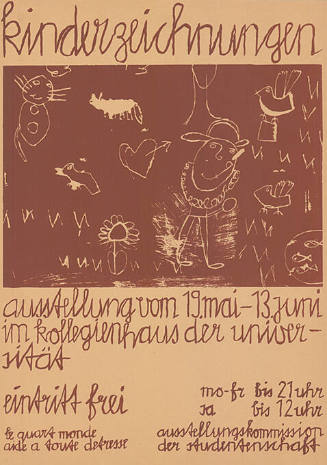 kinderzeichnungen
ausstellung vom 19. mai – 13. juni
im kollegienhaus der univer-
sität
eintritt frei
mo-fr bis 21 uhr
sa bis 12 uhr
le quart monde
aide a toute detresse
ausstellungskommission
der studentenschaft